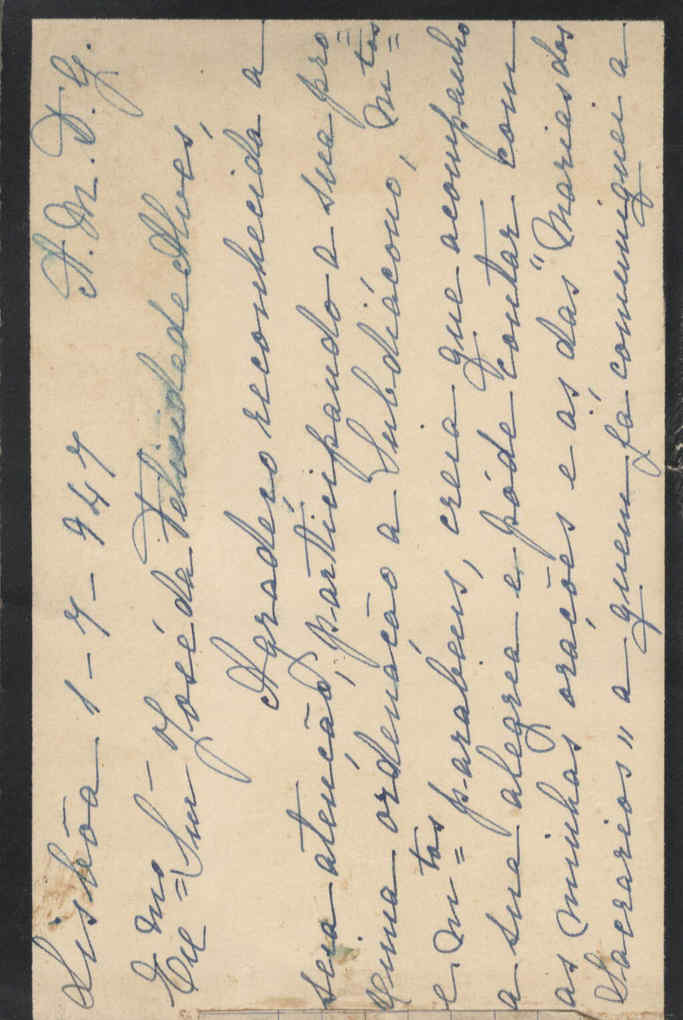 Lisbôa 1-7-947 A. M. D. G.
Exmo = Snr José da Felicidade Alves,
Agradeço reconhecida a
sua atenção, participando a sua pro=
xima ordenação a Subdiácono, mtos=
e mtos= parabéns, creia que acompanho
a sua alegria e póde contar com
as minhas orações e ás das "Marias dos
Sacrarios" a quem já comuniquei a